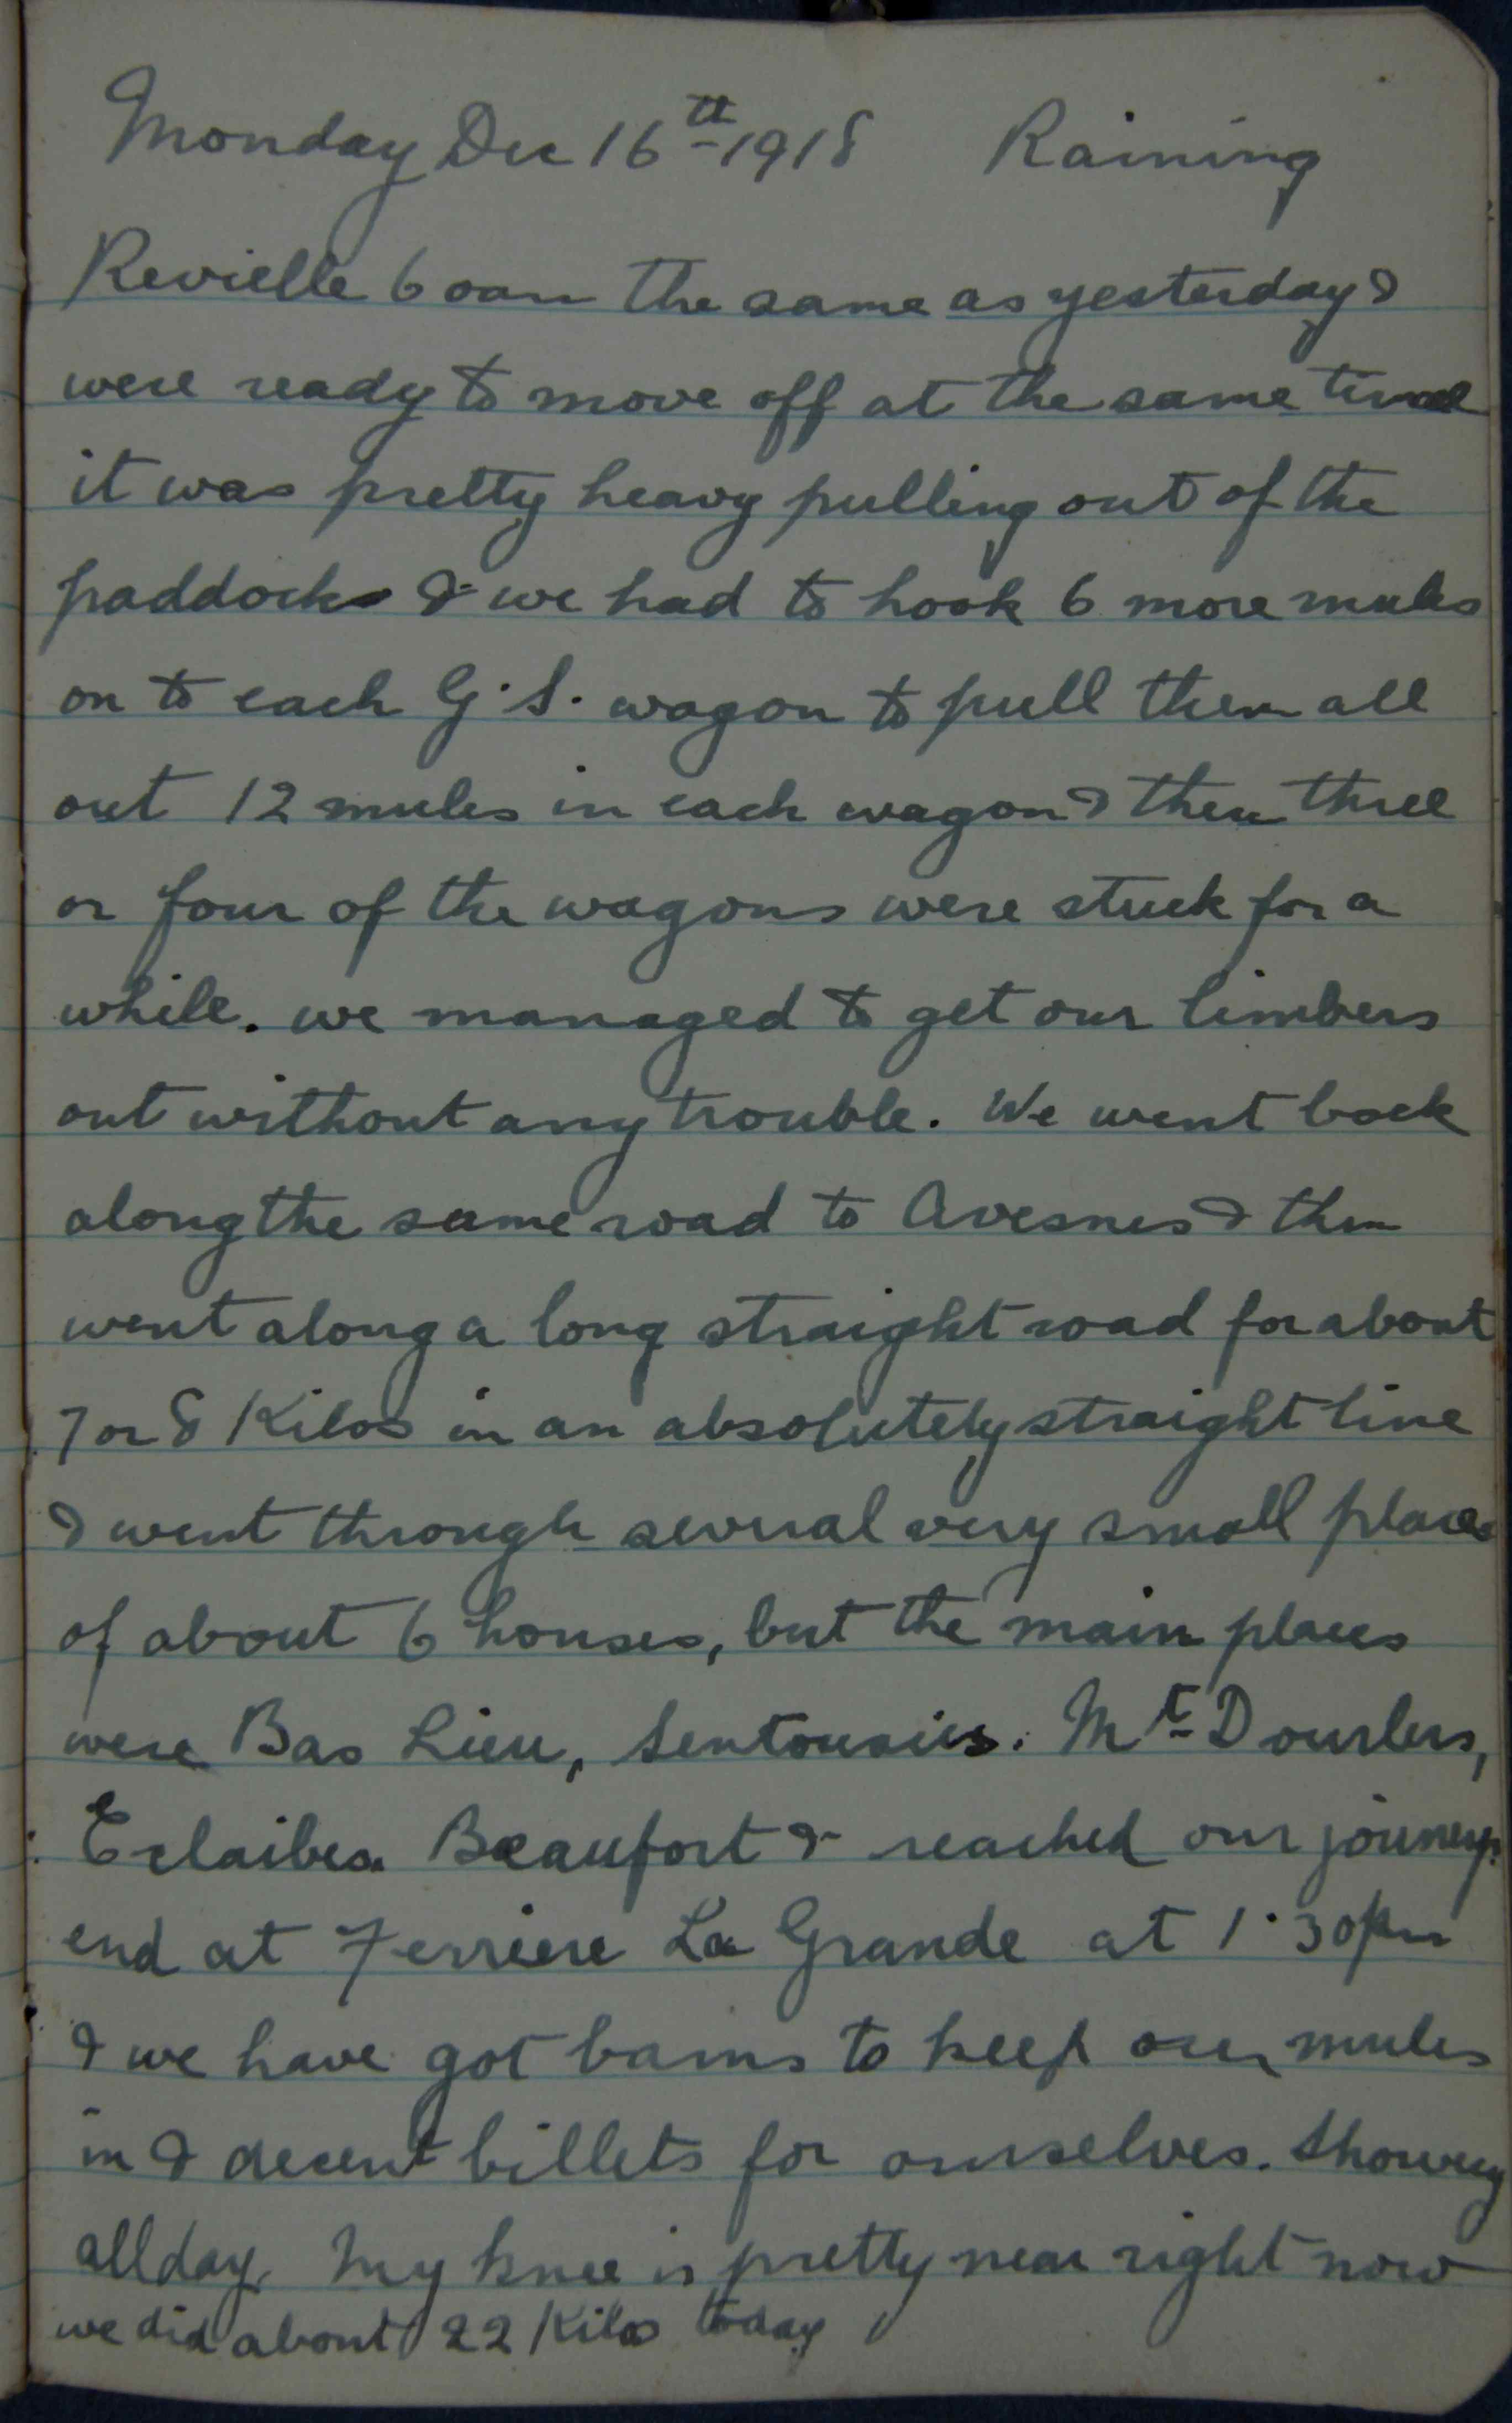 Monday Dec 16th 1918 Raining
Revielle 6 oam the same as yesterday &
were ready to move off at the same time
it was pretty heavy pulling out of the
paddocks & we had to hook 6 more mules
on to each G.S. wagon to pull them all
out 12 mules in each wagon & then three
or four of the wagons were stuck for a
while. we managed to get our limbers
out without any trouble. We went back
along the same road to Avesnes & then
went along a long straight road for about
7 or 8 Kilos in an absolutely straight line
& went through several very small places
of about 6 houses, but the main places
were Bas Lieu, Mt Dourlers,
Eclaibes Beaufort & reached our journeys
end at Ferriere La Grande at 1.30pm
& we have got barns to keep our mules
in & decent billets for ourselves. Showery
all day. My knee is pretty near right now
we did about 22 Kilos today